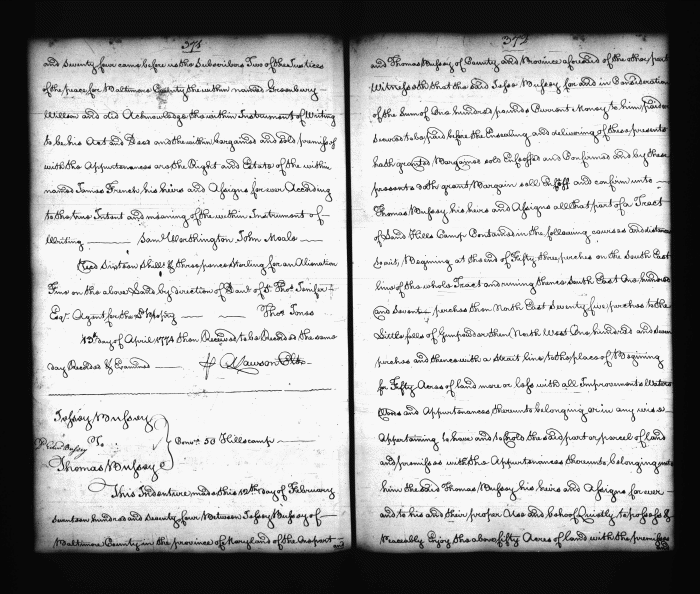 371
and seventy four came before us the subscribers Two of the Justices
of the peace for Baltimore County the within named Greenbury
Willson and did Acknowledge the within Instrument of Writing
to be his Act and Deed and the within bargained and sold premises
with the Appurtenances are the Right and Estate of the within
named James French his heirs and Assigns for ever According
to the true Intent and meaning of the within Instrument of
Writing Saml Worthington John Moale
Recd Sixteen Shills & three pence Sterling for an Alienation
Fine on the above Land by direction of Danl of St Thos Jenifer
Esqr Agent for the Ld Propry Thos Jones
12th day of April 1774 then Received to be Recorded the same
day Recorded & Examined A Lawson Clk
Jessey Bussey
To
Conv. 50 Hillscamp
Thomas Bussey
This Indenture made this 12th day of February
seventeen hundred and seventy four Between Jessey Bussey of
Baltimore County in the province of Maryland of the one part
and
372
and Thomas Bussey of County and Province aforesaid of the other part
Witnesseth that the said Jesse Bussey for and in Consideration
of the Sum of One hundred pounds Current Money to him paid or
secured to be paid before the Ensealing and delivering of these presents
hath granted Bargained sold Enfeoffed and Confirmed and by these
presents doth grant Bargain sell Enfeoff and confirm unto
Thomas Bussey his heirs and Assigns all that part of a Tract
of Land Hills Camp Contained in the following courses and distances
to wit, Begining at the end of Fifty three perches on the South East
line of the whole Tract and runing thence South East One hundred
and Seven perches then North East Seventy five perches to the
Little falls of Gunpowder then North West One hundred and seven
perches and thence with a strait line to the place of Begining
for Fifty Acres of land more or less with all Improvements Waters
and Appurtenances thereunto belonging or in any wise
Appertaining to have and to hold the said part or parcel of land
and premisses with the Appurtenances thereunto belonging unto
him the said Thomas Bussey his heirs and Assigns for ever
and to his and their proper Use and behoof Quietly to possess &
Peaceably Enjoy the above fifty Acres of land with the premisses